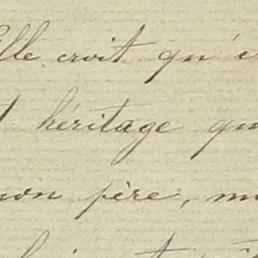 Elle croit qu'i
t héritage qu
mon père, m